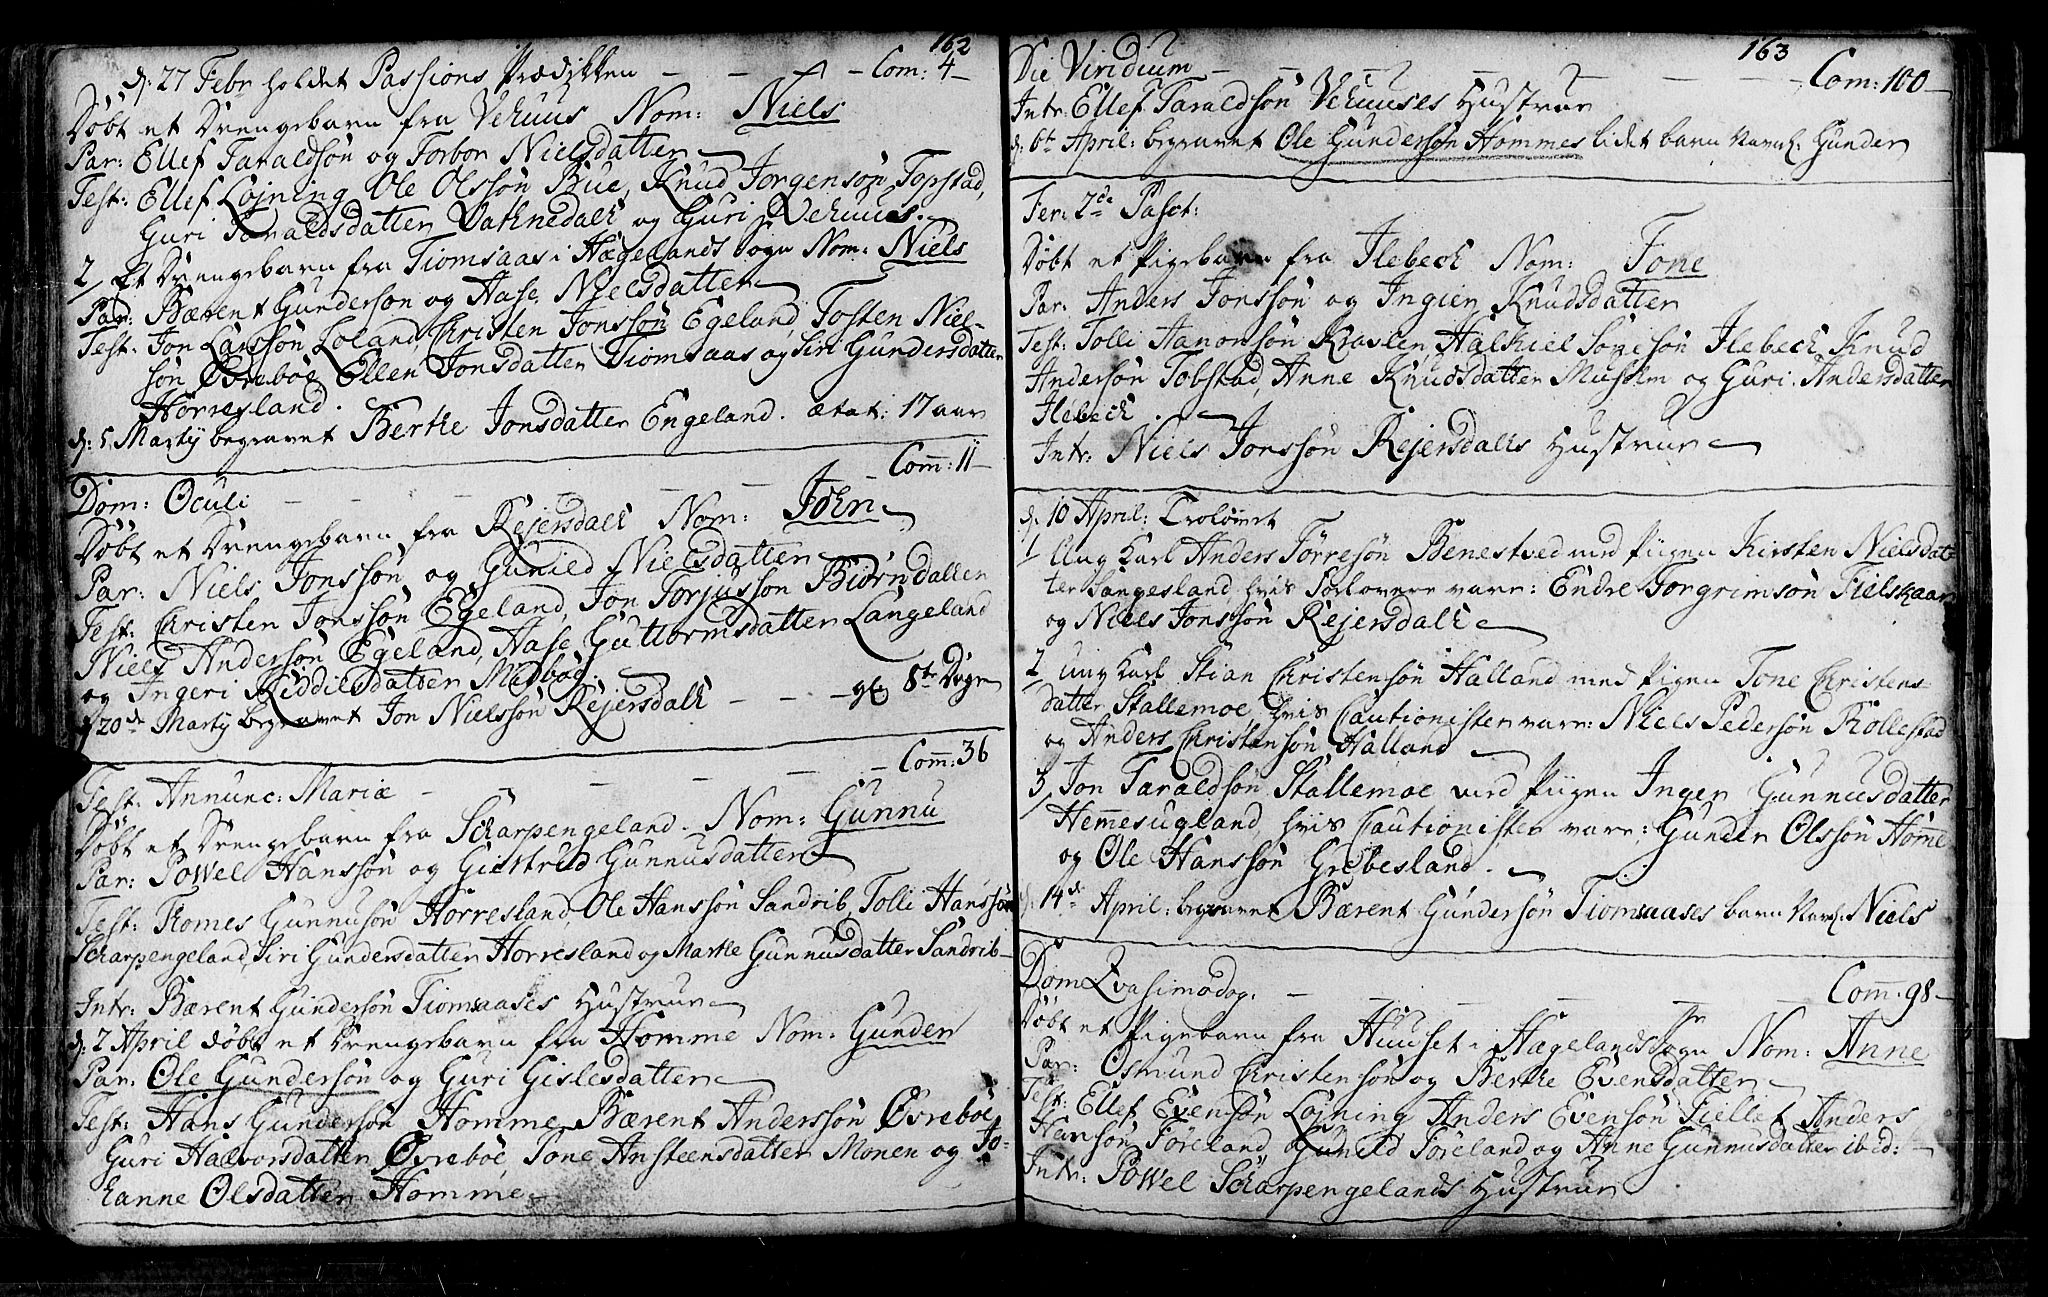 162
d: 27 Febr holdet Passions Prædikken - - - Com: 4 -
Döbt et Drengebarn fra Vehuus Nom: Niels
Par: Ellef Taraldsön og Torbor Nielsdatter
Test: Ellef Löjning, Ole Olssön Bue, Knud Jörgensön Topstad,
Guri Taraldsdatter Vatnedalh og Guri Vehuus.
2, Et Drengebarn fra Tiomsaas i Hægelands Sogn Nom: Niels
Par: Bærent Gundersön og Aase Nielsdatter
Test: Jon Larssön Loland, Christen Jonssön Egeland, Tosten Niel-
sön Øvreböe, Ellen Jonsdatter Tiomsaas og Siri Gundersdatter
Horresland.
d: 5 Martij begravet Berthe Jonsdatter Engeland. ætat: 17 aar
Dom: Oculi - - - - - Com: 11 -
Döbt et Drengebarn fra Rejersdalh Nom: John
Par: Niels Jonssön og Gunild Nielsdatter
Test: Christen Jonssön Egeland, Jon Torjussön Biörndalen
Niels Anderssön Egeland, Aase Guttormsdatter Langeland
og Ingeri Kiddilsdatter Midboe.
d 20de Martij begravet Jon Nielssön Rejersdalh - - - gl 8te Dage
Fest: Annunc: Mariæ - - - - - Com: 36
Döbt et Drengebarn fra Scharpengeland. Nom: Gunnu
Par: Powel Hanssön og Giertrud Gunnusdatter
Test: Thomes Gunnusön Horresland, Ole Hanssön Sandrib, Tolli Hanssön
Scharpengeland, Siri Gundersdatter Horresland og Marthe Gunnusdatter Sandrib -
Intr: Bærent Gundersön Tiomsaases Hustrue
d: 2 April döbt et Drengebarn fra Homme Nom: Gunder
Par: Ole Gundersön og Guri Gislesdatter
Test: Hans Gundersön Homme, Bærent Anderssön Øvreböe
Guri Halvorsdatter Øvreböe, Tone Ansteensdatter Monen og Jo-
hanne Olsdatter Homme
163
Die Viridium - - - - - - Com: 100 -
Intr: Ellef Taraldsön Vehuuses Hustrue
d: 6te April: begravet Ole Gundersön Hommes lidet barn Navnl: Gunder
Fer: 2de Pasct:
Döbt et Pigebarn fra Ilebech Nom: Tone
Par: Anders Jonssön og Ingier Knudsdatter
Test: Tolli Aanonsön Kraslen Halkiel Sönesön Ilebech Knud
Andersön Tobstad, Anne Knudsdatter Musolm og Guri Andersdatter
Ilebech.
Intr: Niels Jonssön Rejersdalhs Hustrue
d: 10 April: Troloved
1 Ung Karl Anders Törresön Benestved med Pigen Kirsten Nielsdat-
ter Langesland, hvis Forlovere vare: Endre Torgrimsön Fielskaar
og Niels Jonssön Rejersdalh
2, Ung Karl Stian Christensön Halland med Pigen Tone Christens-
datter Stallemoe, hvis Cautionister vare: Niels Pedersön Röllestad
og Anders Christensön Halland
3, Jon Taraldsön Stallemoe med Pigen Inger Gunnusdatter
Hemesugland, hvis Cautionister vare: Gunder Olssön Home
og Ole Hanssön Grebesland.
d. 14de April: begravet Bærent Gundersön Tiomsaases barn Navnl: Niels
Dom Qvasimodog. - - - - - - Com: 98 -
Döbt et Pigebarn fra Huuset i Hægelands Sogn Nom: Anne
Par: Osmund Christensön og Berthe Evensdatter
Test: Ellef Evensön Löjning, Anders Evensön Fiellet, Anders
Hansön Föreland, Gunild Föreland og Anne Gunnusdatter ibid:
Intr: Powel Scharpengelands Hustrue